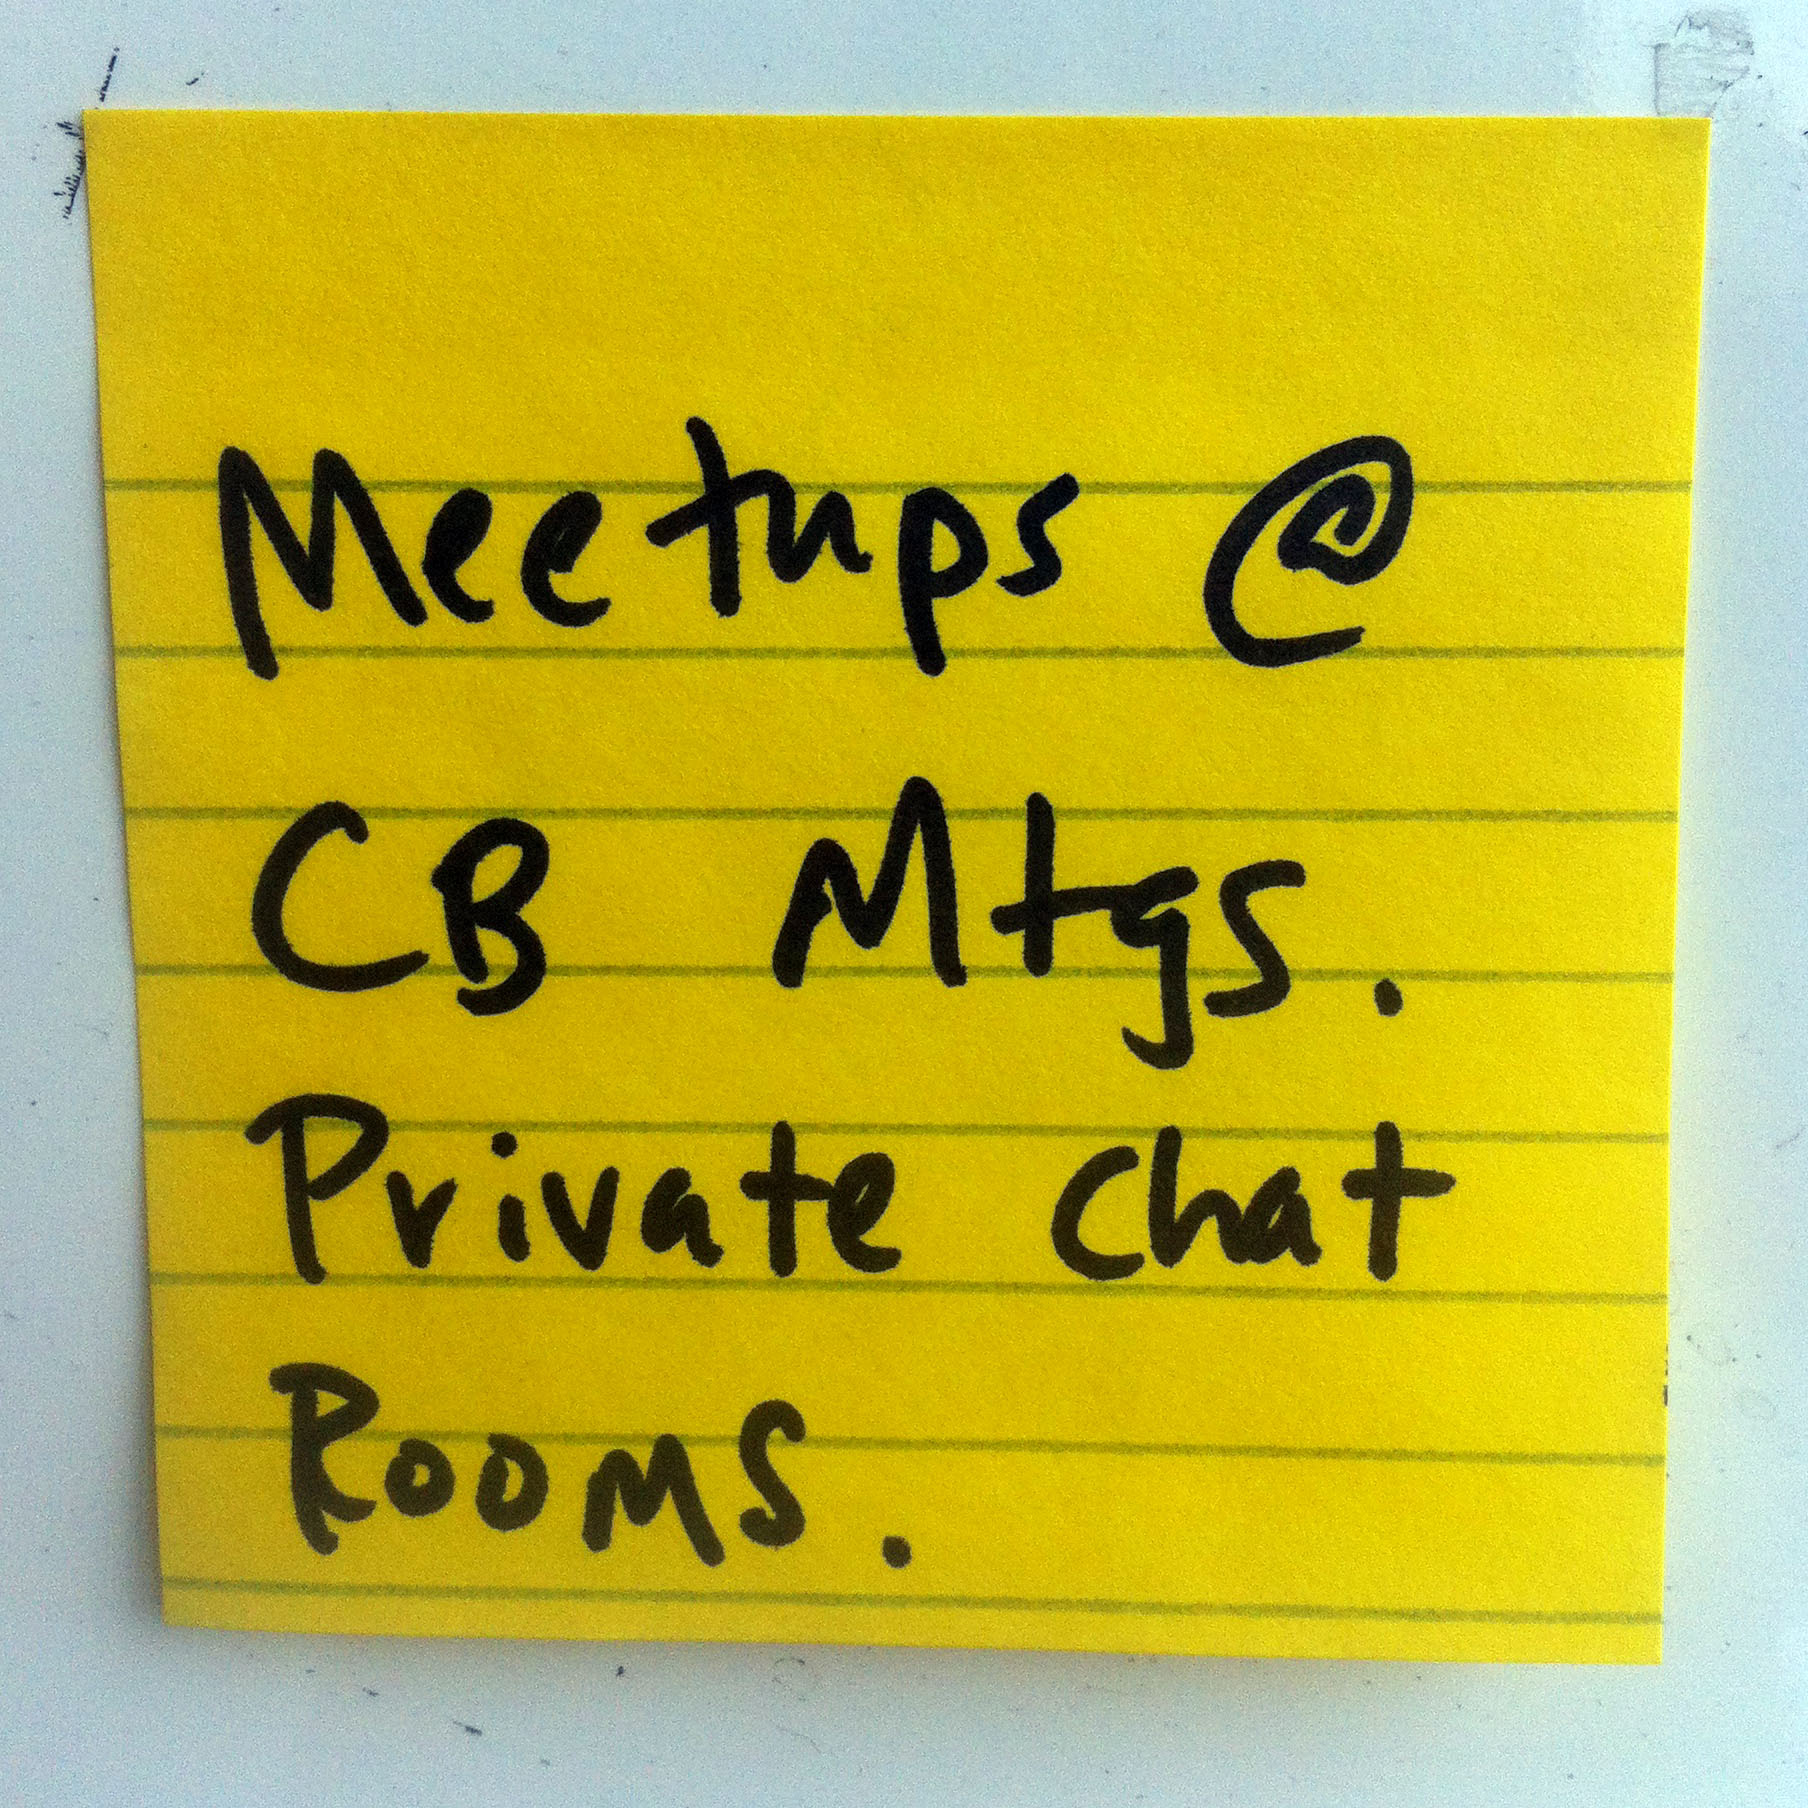 Meetups @
CB Mtgs.
Private Chat
Rooms.